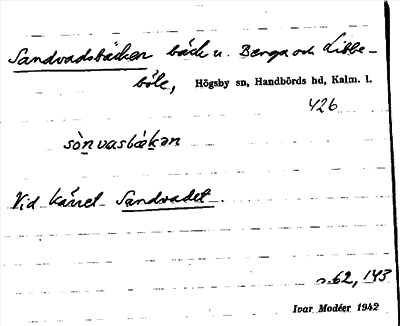 Sandvadsbäcken bäck u. Berga och Libbe-
böle, Högsby sn, Handbörds hd, Kalm. l.
426
sònvasbækən
Vid kärret Sandvadet.
s. 62, 143
Ivar Modéer 1942